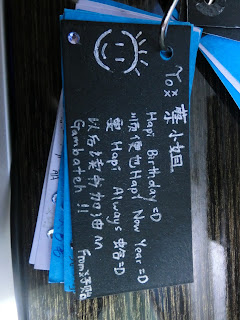 Toxx 葉小姐
Hapi Birthday =D
順便也Hapi New Year =D
要 Hapi Always =D
以后读书加油
Gambateh !!
From